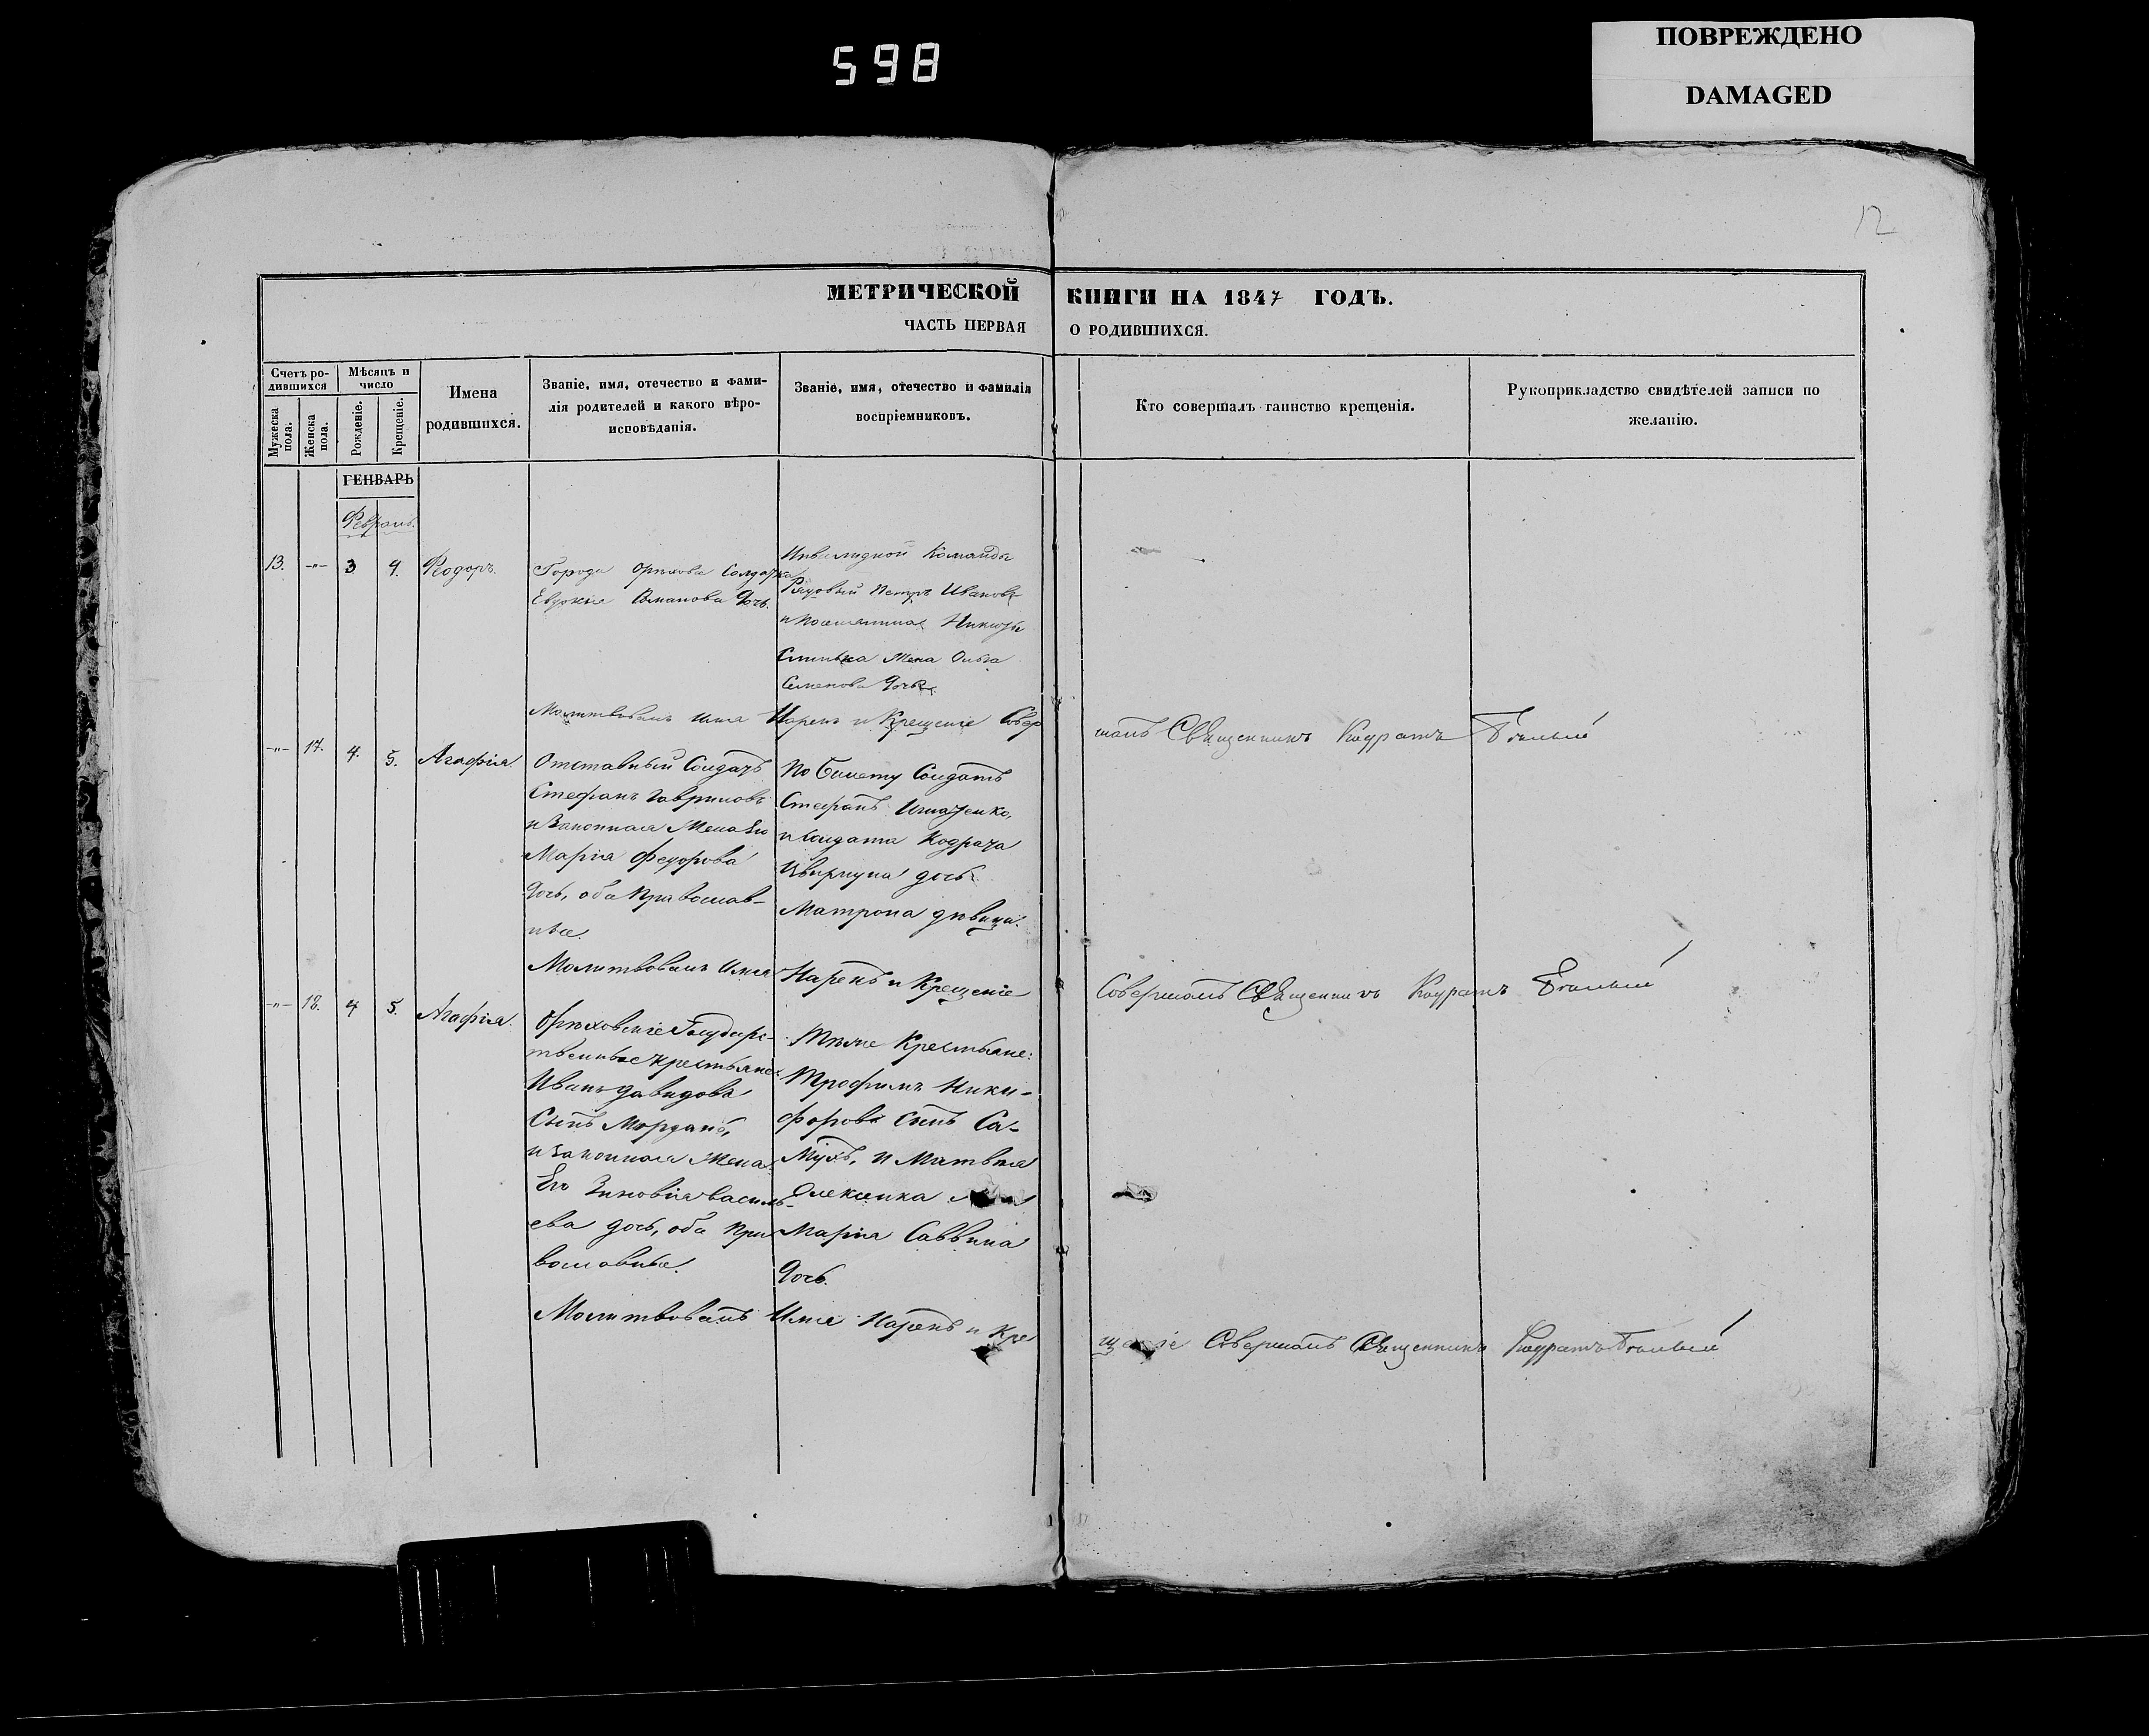 598
ПОВРЕЖДЕНО
DAMAGED
12
МЕТРИЧЕСКОЙ КНИГИ НА 1847 ГОДЪ.
ЧАСТЬ ПЕРВАЯ О РОДИВШИХСЯ.
Счетъ ро-
дившихся
Мужеска
пола.
Женска
пола.
Мѣсяцъ и
число
Рожденіе.
Крещеніе.
Имена
родившихся.
Званіе, имя, отечество и фами-
лія родителей и какого вѣро-
исповѣданія.
Званіе, имя, отечество и фамилія
воспріемниковъ.
Кто совершалъ таинство крещенія.
Рукоприкладство свидѣтелей записи по
желанію.
ГЕНВАРЬ
Февраль.
13. -"- 3 4. Феодоръ.
Города Орѣхова Солдатка
Евдокія Романова дочь.
Инвалидной Команды
Рядовый Петръ Ивановъ
и поселянина
жена Ольга
Семенова дочь.
Молитвовалъ имя Нарекъ и Крещеніе Совер
шалъ Священникъ Кодратъ Бѣлый
-"- 17. 4. 5. Агафія.
Отставный Солдатъ
Стефанъ Гавриловъ
и Законная Жена Его
Марія Федорова
дочь, оба Православ-
ные.
По билету Солдатъ
Стефанъ Игнатенко,
и Солдата Кодрата
Цвиркуна дочь
Матрона дѣвица.
Молитвовалъ Имя Нарекъ и Крещеніе
Совершалъ Священникъ Кодратъ Бѣлый
-"- 18. 4 5. Агафія.
Орѣховскіе Государс-
твенные крестьяне
Иванъ Давидовъ
Сынъ
и законная Жена
Его Зиновія Василь-
ева дочь, оба Пра
вославные.
Тѣже Крестьяне:
Трофимъ Ники-
форовъ Сынъ Са-
мутъ, и Матвѣя
Олексенка
Марія Саввина
дочь.
Молитвовалъ Имя Нарекъ и Кре
щеніе Совершалъ Священникъ Кодратъ Бѣлый